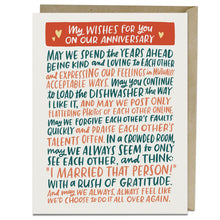 MY WISHES FOR YOU
ON OUR ANNIVERSARY
MAY WE SPEND THE YEARS AHEAD
BEING KIND AND LOVING TO EACH OTHER
AND EXPRESSING OUR FEELINGS IN MUTUALLY
ACCEPTABLE WAYS. MAY YOU CONTINUE
TO LOAD THE DISHWASHER THE WAY
I LIKE IT, AND MAY WE POST ONLY
FLATTERING PHOTOS OF EACH OTHER ONLINE.
MAY WE FORGIVE EACH OTHER'S FAULTS
QUICKLY AND PRAISE EACH OTHER'S
TALENTS OFTEN. IN A CROWDED ROOM,
MAY WE ALWAYS SEEM TO ONLY
SEE EACH OTHER, AND THINK:
"I MARRIED THAT PERSON!"
WITH A RUSH OF GRATITUDE.
AND MAY WE ALWAYS, ALWAYS FEEL LIKE
WE'D CHOOSE TO DO IT ALL OVER AGAIN.